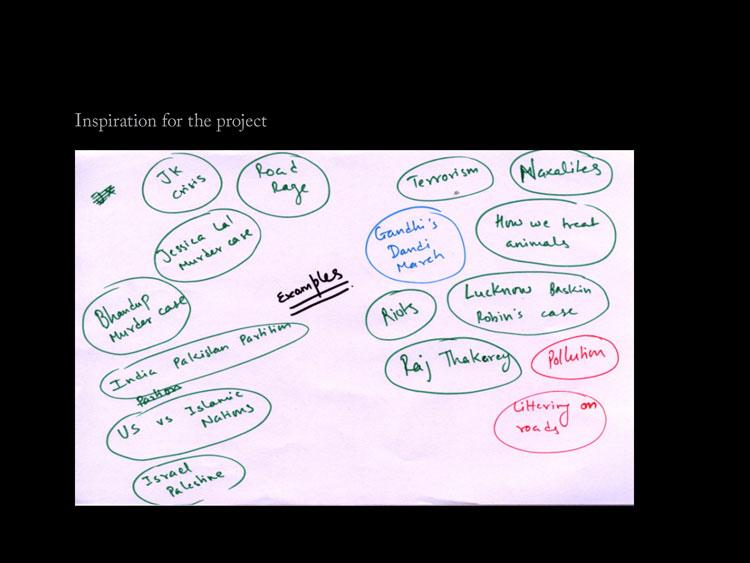 Inspiration for the project
JK
crisis
Road
Rage
Terrorism
Naxalites
Jessica Lal
Murder case
Gandhi's
Dandi
March
How we treat
animals
Examples
Bhandup
Murder case
Riots
Lucknow Baskin
Robin's case
India Pakistan Partition
Raj Thakerey
Pollution
US vs Islamic
Nations
Littering on
roads
Israel
Palestine